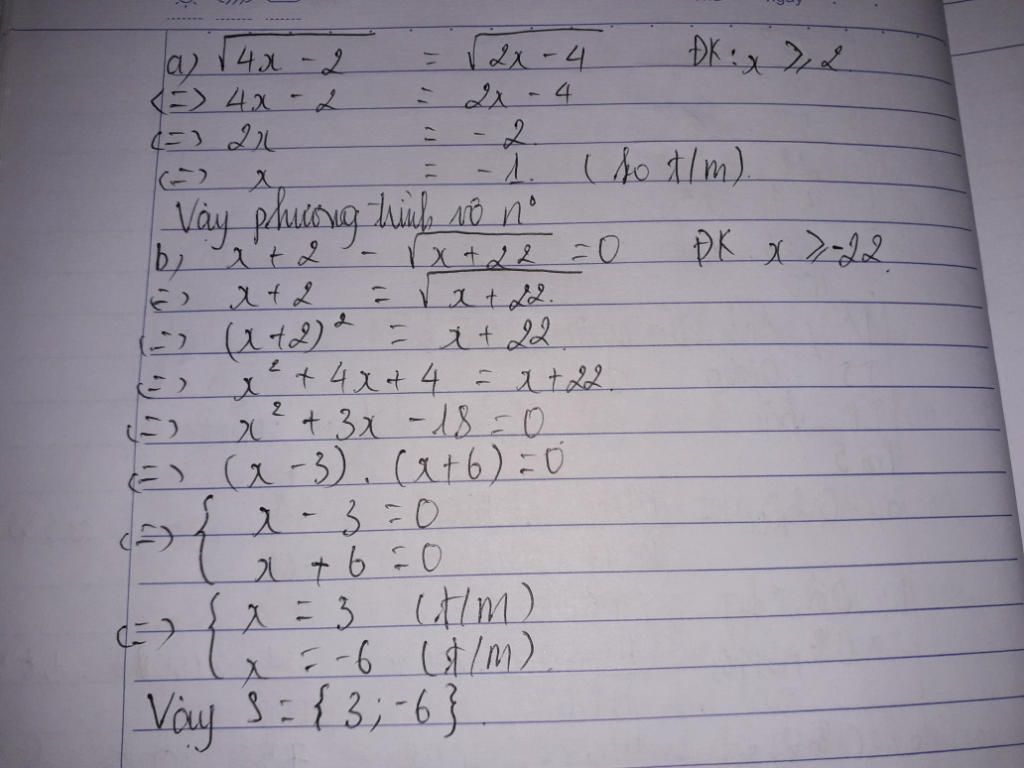 a) √(4x - 2) = √(2x - 4) ĐK: x ≥ 2
<=> 4x - 2 = 2x - 4
<=> 2x = -2
<=> x = -1. (ko t/m).
Vậy phương trình vô n⁰
b, x + 2 - √(x + 22) = 0 ĐK x ≥ -22.
=> x + 2 = √(x + 22).
<=> (x+2)² = x + 22.
<=> x² + 4x + 4 = x + 22.
<=> x² + 3x - 18 = 0
<=> (x - 3) . (x + 6) = 0
<=> { x - 3 = 0
x + 6 = 0
<=> { x = 3 (t/m)
x = -6 (t/m).
Vậy S = {3; -6}.